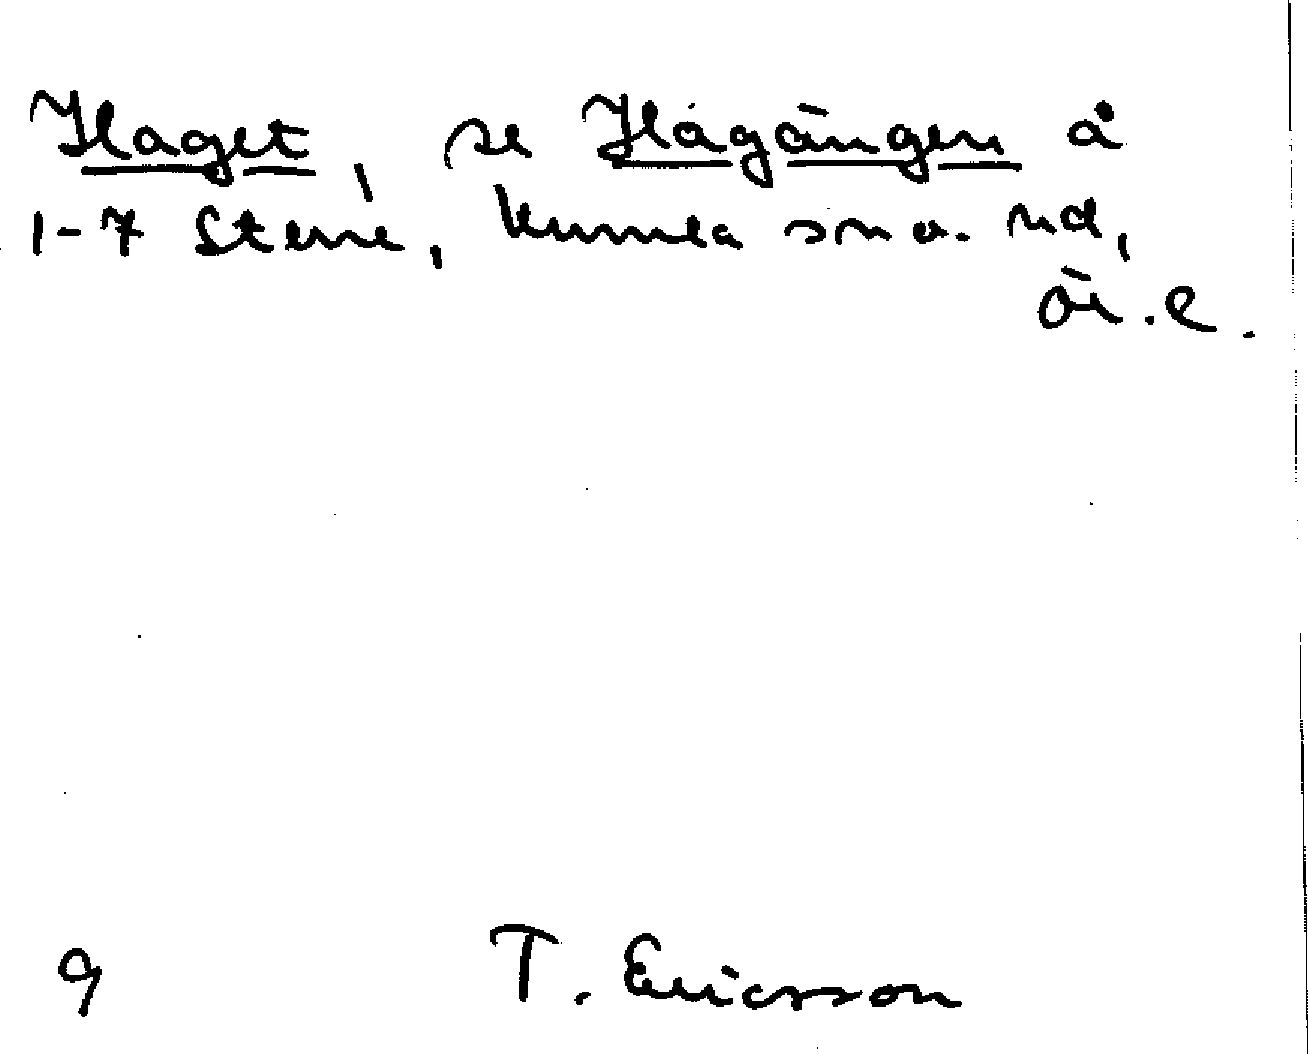 Haget, se Hagängen å
1-7 Stene, Kumla sn o. hd,
Ör. l.
9 T. Ericsson